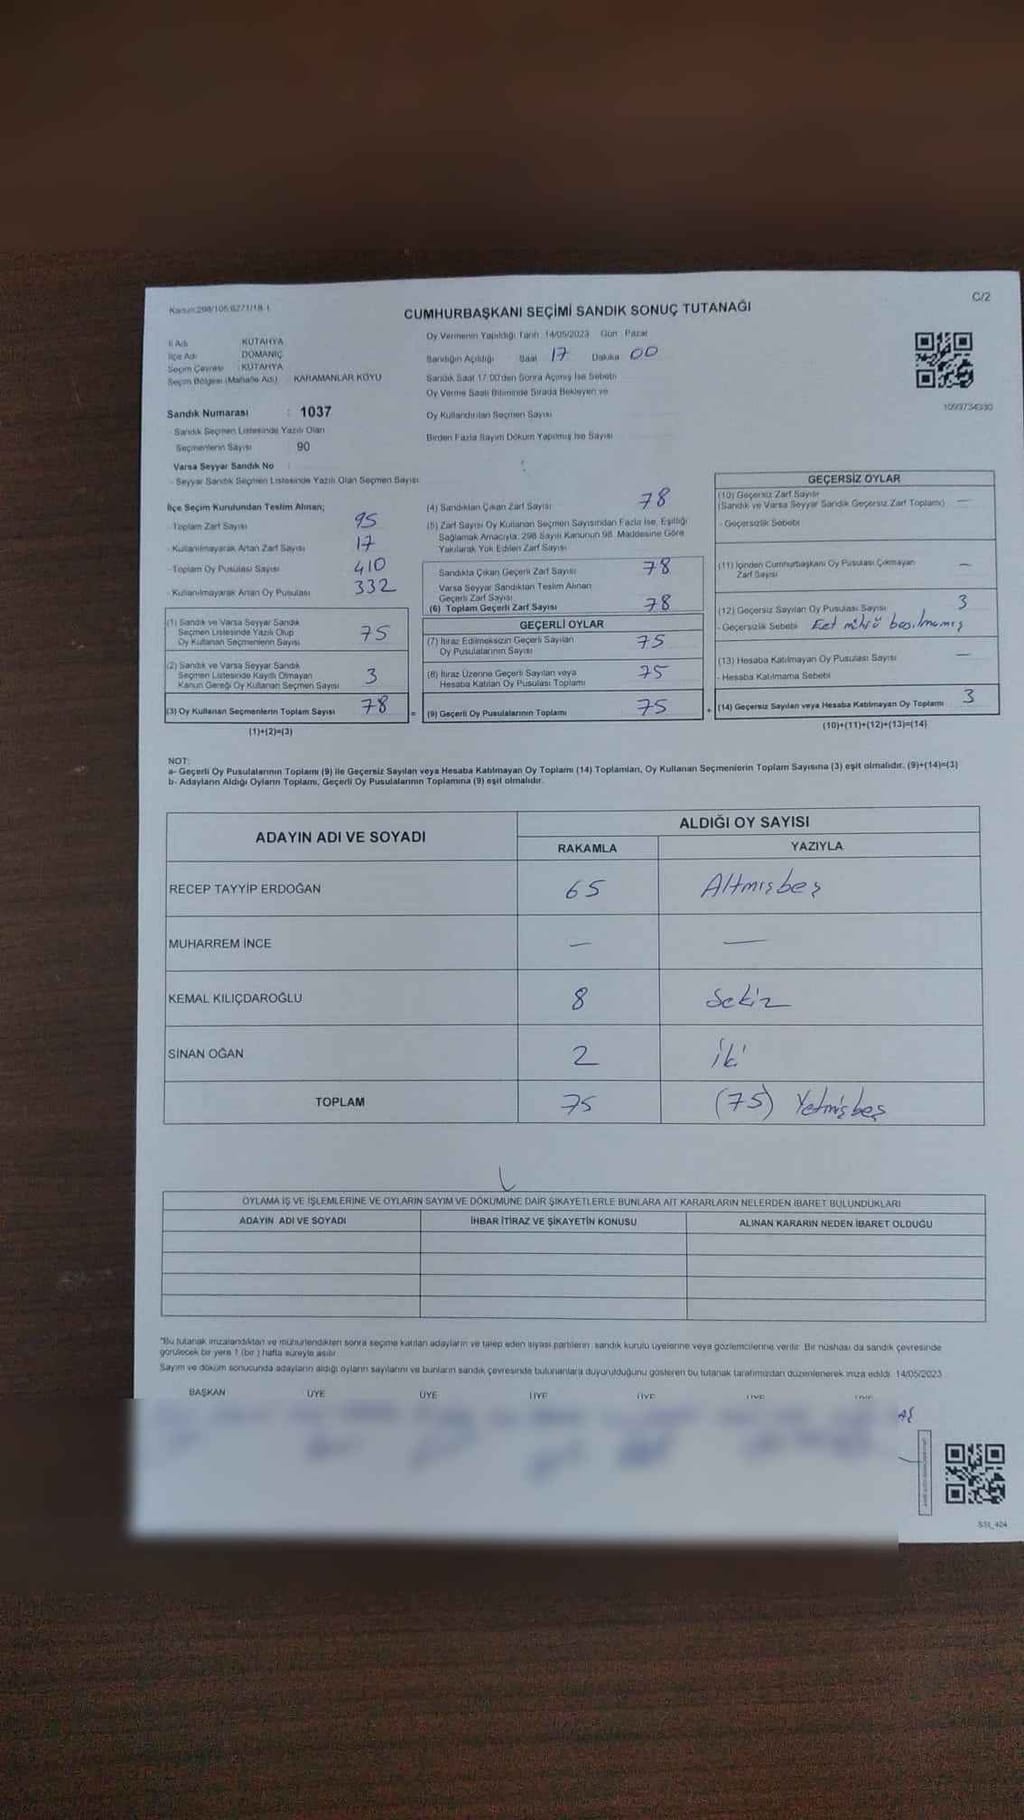 Kanun:298/105,6271/18 1
C/2
CUMHURBAŞKANI SEÇİMİ SANDIK SONUÇ TUTANAĞI
İl Adı KÜTAHYA
İlçe Adı DOMANİÇ
Seçim Çevresi : KÜTAHYA
Seçim Bölgesi (Mahalle Adı) : KARAMANLAR KÖYÜ
Sandık Numarası : 1037
Sandık Seçmen Listesinde Yazılı Olan
Seçmenlerin Sayısı 90
Varsa Seyyar Sandık No
- Seyyar Sandık Seçmen Listesinde Yazılı Olan Seçmen Sayısı
Oy Vermenin Yapıldığı Tarih 14/05/2023 Gün Pazar
Sandığın Açıldığı Saat 17 Dakika 00
Sandık Saat 17:00'den Sonra Açılmış İse Sebebi
Oy Verme Saati Bitiminde Sırada Bekleyen ve
Oy Kullandırılan Seçmen Sayısı
Birden Fazla Sayım Döküm Yapılmış İse Sayısı
İlçe Seçim Kurulundan Teslim Alınan;
- Toplam Zarf Sayısı 95
- Kullanılmayarak Artan Zarf Sayısı 17
- Toplam Oy Pusulası Sayısı 410
- Kullanılmayarak Artan Oy Pusulası 332
(1) Sandık ve Varsa Seyyar Sandık
Seçmen Listesinde Yazılı Olup
Oy Kullanan Seçmenlerin Sayısı 75
(2) Sandık ve Varsa Seyyar Sandık
Seçmen Listesinde Kayıtlı Olmayan
Kanun Gereği Oy Kullanan Seçmen Sayısı 3
(3) Oy Kullanan Seçmenlerin Toplam Sayısı 78
(1)+(2)=(3)
(4) Sandıktan Çıkan Zarf Sayısı 78
(5) Zarf Sayısı Oy Kullanan Seçmen Sayısından Fazla İse, Eşitliği
Sağlamak Amacıyla, 298 Sayılı Kanunun 98. Maddesine Göre
Yakılarak Yok Edilen Zarf Sayısı
Sandıkta Çıkan Geçerli Zarf Sayısı 78
Varsa Seyyar Sandıktan Teslim Alınan
Geçerli Zarf Sayısı
(6) Toplam Geçerli Zarf Sayısı 78
GEÇERLİ OYLAR
(7) İtiraz Edilmeksizin Geçerli Sayılan
Oy Pusulalarının Sayısı 75
(8) İtiraz Üzerine Geçerli Sayılan veya
Hesaba Katılan Oy Pusulası Toplamı 75
= (9) Geçerli Oy Pusulalarının Toplamı 75
GEÇERSİZ OYLAR
(10) Geçersiz Zarf Sayısı
(Sandık ve Varsa Seyyar Sandık Geçersiz Zarf Toplamı) —
- Geçersizlik Sebebi
(11) İçinden Cumhurbaşkanı Oy Pusulası Çıkmayan
Zarf Sayısı —
(12) Geçersiz Sayılan Oy Pusulası Sayısı 3
- Geçersizlik Sebebi Evet mührü basılmamış
(13) Hesaba Katılmayan Oy Pusulası Sayısı —
- Hesaba Katılmama Sebebi
+ (14) Geçersiz Sayılan veya Hesaba Katılmayan Oy Toplamı 3
(10)+(11)+(12)+(13)=(14)
NOT:
a- Geçerli Oy Pusulalarının Toplamı (9) ile Geçersiz Sayılan veya Hesaba Katılmayan Oy Toplamı (14) Toplamları, Oy Kullanan Seçmenlerin Toplam Sayısına (3) eşit olmalıdır. (9)+(14)=(3)
b- Adayların Aldığı Oyların Toplamı, Geçerli Oy Pusulalarının Toplamına (9) eşit olmalıdır.
ADAYIN ADI VE SOYADI
ALDIĞI OY SAYISI
RAKAMLA YAZIYLA
RECEP TAYYİP ERDOĞAN 65 Altmışbeş
MUHARREM İNCE — —
KEMAL KILIÇDAROĞLU 8 Sekiz
SİNAN OĞAN 2 İki
TOPLAM 75 (75) Yetmişbeş
OYLAMA İŞ VE İŞLEMLERİNE VE OYLARIN SAYIM VE DÖKÜMÜNE DAİR ŞİKAYETLERLE BUNLARA AİT KARARLARIN NELERDEN İBARET BULUNDUKLARI
ADAYIN ADI VE SOYADI İHBAR İTİRAZ VE ŞİKAYETİN KONUSU ALINAN KARARIN NEDEN İBARET OLDUĞU
"Bu tutanak imzalandıktan ve mühürlendikten sonra seçime katılan adayların ve talep eden siyasi partilerin sandık kurulu üyelerine veya gözlemcilerine verilir. Bir nüshası da sandık çevresinde
görülecek bir yere 1 (bir) hafta süreyle asılır.
Sayım ve döküm sonucunda adayların aldığı oyların sayılarını ve bunların sandık çevresinde bulunanlara duyurulduğunu gösteren bu tutanak tarafımızdan düzenlenerek imza edildi. 14/05/2023
BAŞKAN ÜYE ÜYE ÜYE ÜYE ÜYE ÜYE